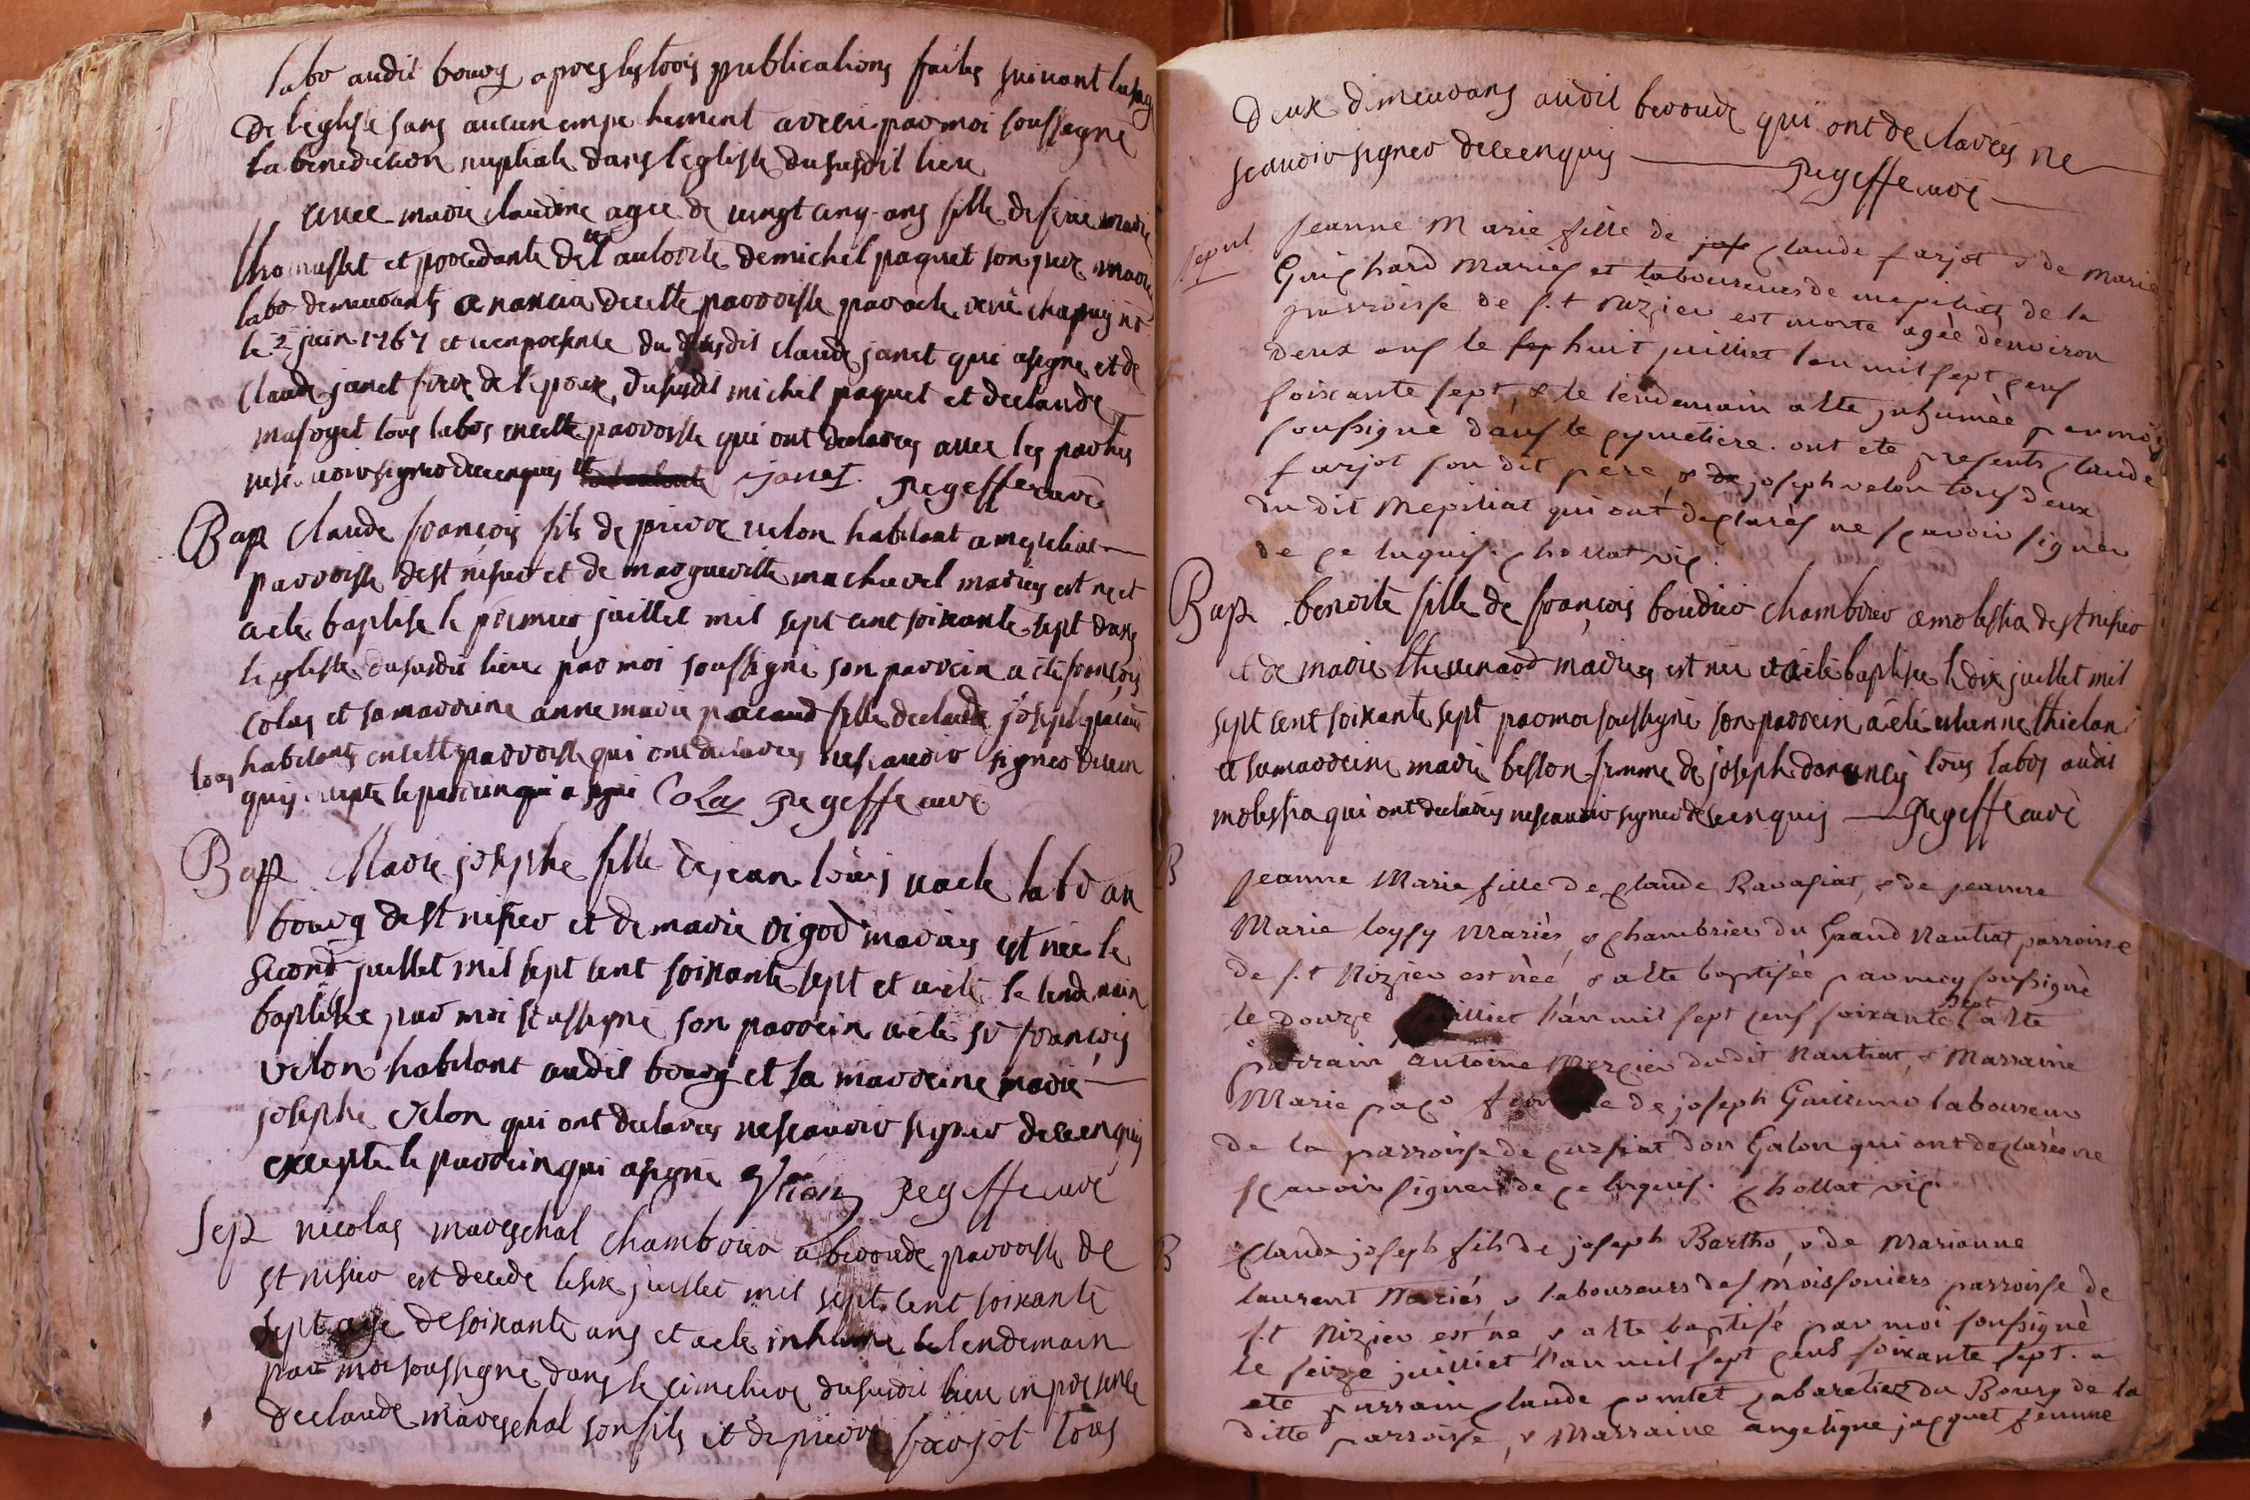 labo audit bourg apres les trois publications faites suivant lusag
de leglise sans aucun empe hement a receu par moi soussigné
la benediction nuptiale dans leglise du susdit lieu
avec marie claudine agee de vingt cinq ans fille de feue marie
thomasset et procedante de l autorité de michel paquet son pere
labo demeurants a nancia decette parroisse par acte recu chapuy
le 2 juin 1767 et en presence du susdit claude janet qui a signe et de
Claude janet frere de lepoux, du susdit michel paquet et declaude
tous labos en cette parroisse qui ont declarés avec les parties
ne scavoir signer de ce enquis janet. regeffe curé
Bap Claude francois fils de pierre velon habitant a mepiliat
parroisse de st nisier et de marguerite machurel mariés est ne et
a ete baptisé le premier juillet mil sept cent soixante sept dans
leglise du susdit lieu par moi soussigné son parrein a été francois
Colas et sa marreine anne marie pacaud fille declaude joseph pacau
tous habitants en cette parroisse qui ont declarés ne scavoir signer de ce en
quis excepte le parrein qui a signé Colas regeffe curé
Bap Marie josephe fille de jean louis vacle labo au
bourg de st nisier et de marie rigod mariés est née le
second juillet mil sept cent soixante sept et a eté le lendemain
baptisée par moi soussigné son parrein a eté sr francois
velon habitant audit bourg et sa marreine marie
josephe velon qui ont declarés ne scavoir signer de ce enquis
excepté le parrein qui a signé Velon regeffe curé
Sep nicolas mareschal chambrier a broude parroisse de
st nisier est decede le six juillet mil sept cent soixante
sept agé de soixante ans et a ete inhumé le lendemain
par moi soussigné dans le cimetiere du susdit lieu en presence
declaude mareschal son fils et de pierre farjot tous
deux demeurans audit broude qui ont declarés ne
scavoir signer de ce enquis regeffe curé
sepul Jeanne Marie fille de claude farjot & de Marie
Guichard Mariés et laboureurs de mepiliat de la
parroisse de s.t nizier est morte agée denviron
deux ans le huit juilliet lan mil sept cens
soixante sept, & le lendemain a ete inhumée par moi
soussigné dans le cymetiere. ont ete presents claude
farjot son dit pere, & joseph velon tous deux
du dit Mepiliat qui ont declarés ne scavoir signer
de ce enquis. chollat vic.
Bap benoite fille de francois boudier chambrier a molestia de st nisier
et de marie thevenard mariés est née et a eté baptisée le dix juillet mil
sept cent soixante sept par moi soussigné son parrein a été etienne
et sa marreine marie besson femme de joseph tous labos audit
molestia qui ont declarés ne scavoir signer de ce enquis regeffe curé
B Jeanne Marie fille de claude Ravasiat, & de jeanne
Marie loysy Mariés, & chambriers du Grand Nantiat parroisse
de s.t Nizier est née, & a ete baptisée par moy soussigné
le douze juilliet l'an mil sept cens soixante sept a ete
parrain, antoine Mercier du dit nantiat, & Marraine
Marie femme de joseph laboureur
de la parroisse de curciat dongalon qui ont declarés ne
scavoir signer de ce enquis. chollat vic.
B Claude joseph fils de joseph Bartho, & de Marianne
laurent Mariés, & laboureurs des Moissoniers parroisse de
s.t Nizier est né & a ete baptisé par moi soussigné
le seize juilliet l'an mil sept cens soixante sept. a
ete parrain claude comtet cabaretier du Bourg de la
ditte parroisse, & Marraine angelique jacquet femme